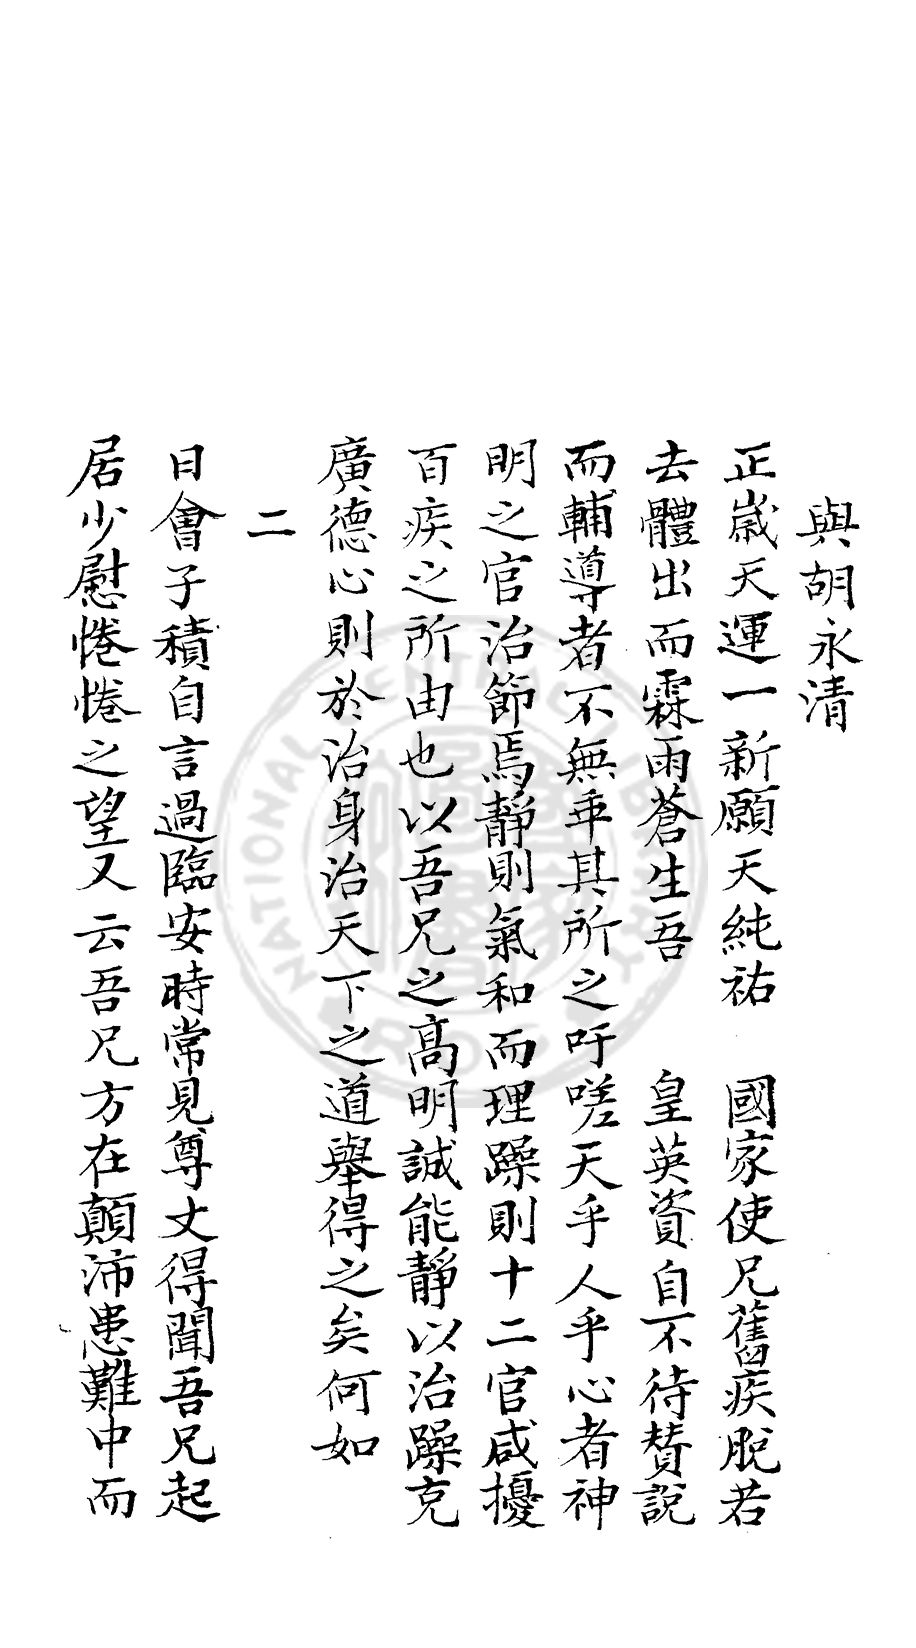 與胡永清
正歲天運一新願天純祐　國家使兄舊疾脫若
去體出而霖雨蒼生吾　皇英資自不待賛說
而輔導者不無乖其所之吁嗟天乎人乎心者神
明之官治節焉靜則氣和而理躁則十二官咸擾
百疾之所由也以吾兄之高明誠能靜以治躁克
廣德心則於治身治天下之道舉得之矣何如
二
日會子積自言過臨安時常見尊丈得聞吾兄起
居少慰惓惓之望又云吾兄方在顛沛患難中而
NATIONAL CENTRAL LIBRARY